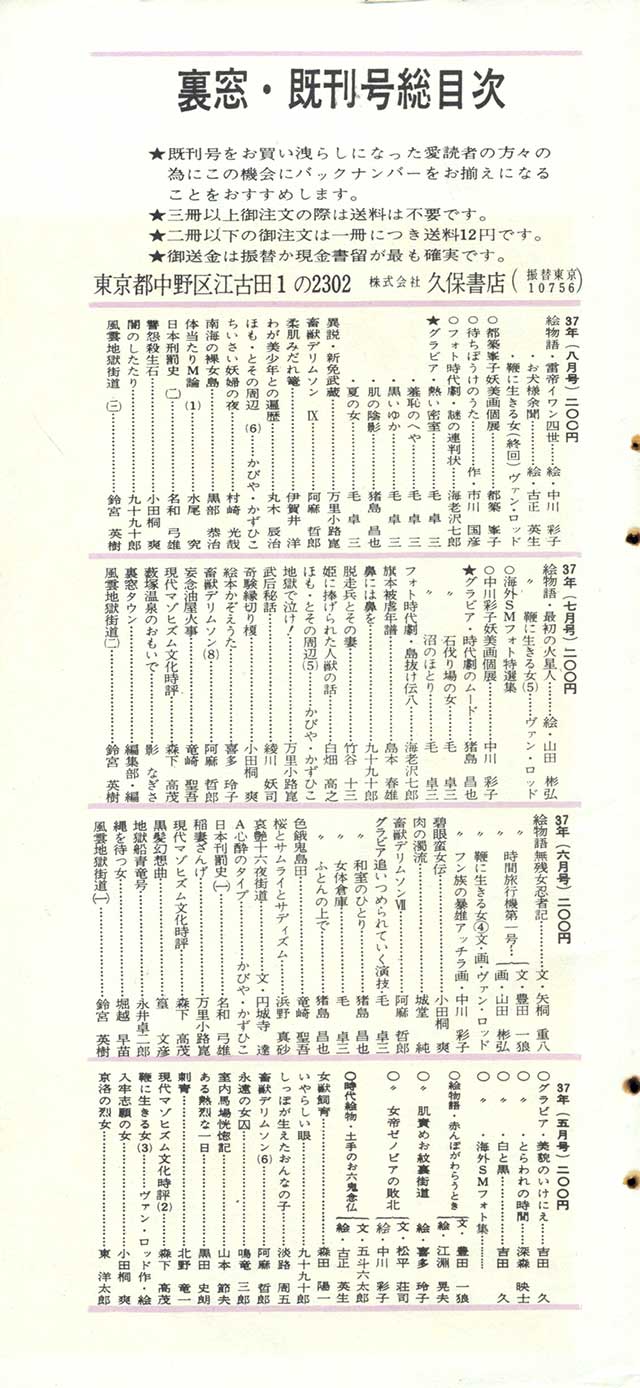 裏窓・既刊号総目次
★既刊号をお買い洩らしになった愛読者の方々の
為にこの機会にバックナンバーをお揃えになる
ことをおすすめします。
★三冊以上御注文の際は送料は不要です。
★二冊以下の御注文は一冊につき送料12円です。
★御送金は振替か現金書留が最も確実です。
東京都中野区江古田1の2302 株式会社 久保書店(振替東京10756)
37年(八月号)二〇〇円
絵物語・雷帝イワン四世……絵・中川 彩子
・お犬様余聞……絵・古正 英生
・鞭に生きる女(終回)ヴァン・ロッド
○都築峯子妖美画個展……都築 峯子
○待ちぼうけのうた……作・市川 国彦
○フォト時代劇・謎の連判状……海老沢七郎
★グラビア・熱い密室……毛 卓三
・羞恥のへや……毛 卓三
・黒いゆか……毛 卓三
・肌の陰影……猪島 昌也
・夏の女……毛 卓三
異説・新免武蔵……万里小路崑
畜獣デリムソン Ⅸ……阿麻 哲郎
柔肌みだれ篭……伊賀井 洋
わが美少年との遍歴……丸木 辰治
ほも・とその周辺(6)…かびや・かずひこ
ちいさい妖婦の夜……村崎 光哉
南海の裸女島……黒部 恭治
体当たりM論(1)……水尾 究
日本刑罰史(二)……名和 弓雄
讐怨殺生石……小田桐 爽
闇のしたたり……九十九十郎
風雲地獄街道(三)……鈴宮 英樹
37年(七月号)二〇〇円
絵物語・最初の火星人……絵・山田 彬弘
〃 鞭に生きる女(5)……ヴァン・ロッド
○海外SMフォト特選集
○中川彩子妖美画個展……中川 彩子
★グラビア・時代劇のムード……猪島 昌也
〃 石伐り場の女……毛 卓三
〃 沼のほとり……毛 卓三
フォト時代劇・島抜け伝八……海老沢七郎
旗本被虐年譜……島本 春雄
鼻には鼻を……九十九十郎
脱走兵とその妻……竹谷 十三
姫に捧げられた人獣の話……白畑 高之
ほも・とその周辺(5)……かびや・かずひこ
地獄で泣け!……万里小路崑
武后秘話……綾川 妖司
奇験縁切り榎……小田桐 爽
絵本かぞえうた……喜多 玲子
畜獣デリムソン(8)……阿麻 哲郎
妄念油屋火事……竜崎 聖吾
現代マゾヒズム文化時評……森下 高茂
藪塚温泉のおもいで……影 なぎさ
裏窓タウン……編集部・編
風雲地獄街道(二)……鈴宮 英樹
37年(六月号)二〇〇円
絵物語無残女忍者記……文・矢桐 重八
〃 時間旅行機第一号…{文・豊田 一狼
画・山田 彬弘
〃 鞭に生きる女④文・画・ヴァン・ロッド
〃 フン族の暴雄アッチラ画 中川 彩子
碧眼蛮女伝……小田桐 爽
肉の濁流……城堂 純
畜獣デリムソンⅦ……阿麻 哲郎
グラビア追いつめられていく演技・毛 卓三
〃 和室のひとり……猪島 昌也
〃 女体倉庫……毛 卓三
〃 ふとんの上で……猪島 昌也
色餓鬼島田……竜崎 聖吾
桜とサムライとサディズム……浜野 真砂
哀艶十六夜街道……文・円城寺 達
A心酔のタイプ……かびや・かずひこ
日本刑罰史(一)……名和 弓雄
稲妻ざんげ……万里小路崑
現代マゾヒズム文化時評……森下 高茂
黒髪幻想曲……篁 文彦
地獄船青竜号……永井卓二郎
縄を待つ女……堀越 早苗
風雲地獄街道(一)……鈴宮 英樹
37年(五月号)二〇〇円
○グラビア・美貌のいけにえ……吉田 久
○〃 ・とらわれの時間……深森 映士
○〃 ・白と黒……吉田 久
○〃 ・海外SMフォト集……
○絵物語・赤んぼがわらうとき{文・豊田 一狼
絵・江渕 晃夫
○〃 肌責めお紋裏街道 絵・喜多 玲子
○〃 女帝ゼノビアの敗北{文・松平 荘司
絵・中川 彩子
○時代絵物・土手のお六鬼念仏{文・五斗六太郎
絵・古正 英生
女獣飼育……森田 陽一
いやらしい眼……九十九十郎
しっぽが生えたおんなの子……淡路 周五
畜獣デリムソン(6)……阿麻 哲郎
永遠の女囚……鳴竜 三郎
室内馬場恍惚記……山本 節夫
ある熱烈な一日……黒田 史朗
刺青……北野 竜一
現代マゾヒズム文化時評(2)……森下 高茂
鞭に生きる女(3)……ヴァン・ロッド作・絵
入牢志願の女……小田桐 爽
京洛の烈女……東 洋太郎